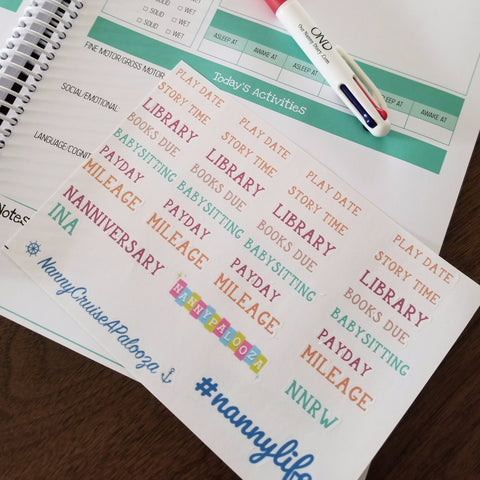 SOLID WET
SOLID WET
SOLID WET
SOLID WET
ASLEEP AT AWAKE AT ASLEEP AT AWAKE AT ASLEEP AT AWAKE AT
FINE MOTOR/GROSS MOTOR
Today's Activities
SOCIAL/EMOTIONAL
LANGUAGE/COGNI
Notes
OND
Our Nanny Diary.Com
PLAY DATE
STORY TIME
LIBRARY
BOOKS DUE
BABYSITTING
PAYDAY
MILEAGE
NANNIVERSARY
INA
PLAY DATE
STORY TIME
LIBRARY
BOOKS DUE
BABYSITTING
PAYDAY
MILEAGE
PLAY DATE
STORY TIME
LIBRARY
BOOKS DUE
BABYSITTING
PAYDAY
MILEAGE
PLAY DATE
STORY TIME
LIBRARY
BOOKS DUE
BABYSITTING
PAYDAY
MILEAGE
NNRW
NannyCruiseAPalooza
NANNYPALOOZA
#nannylife